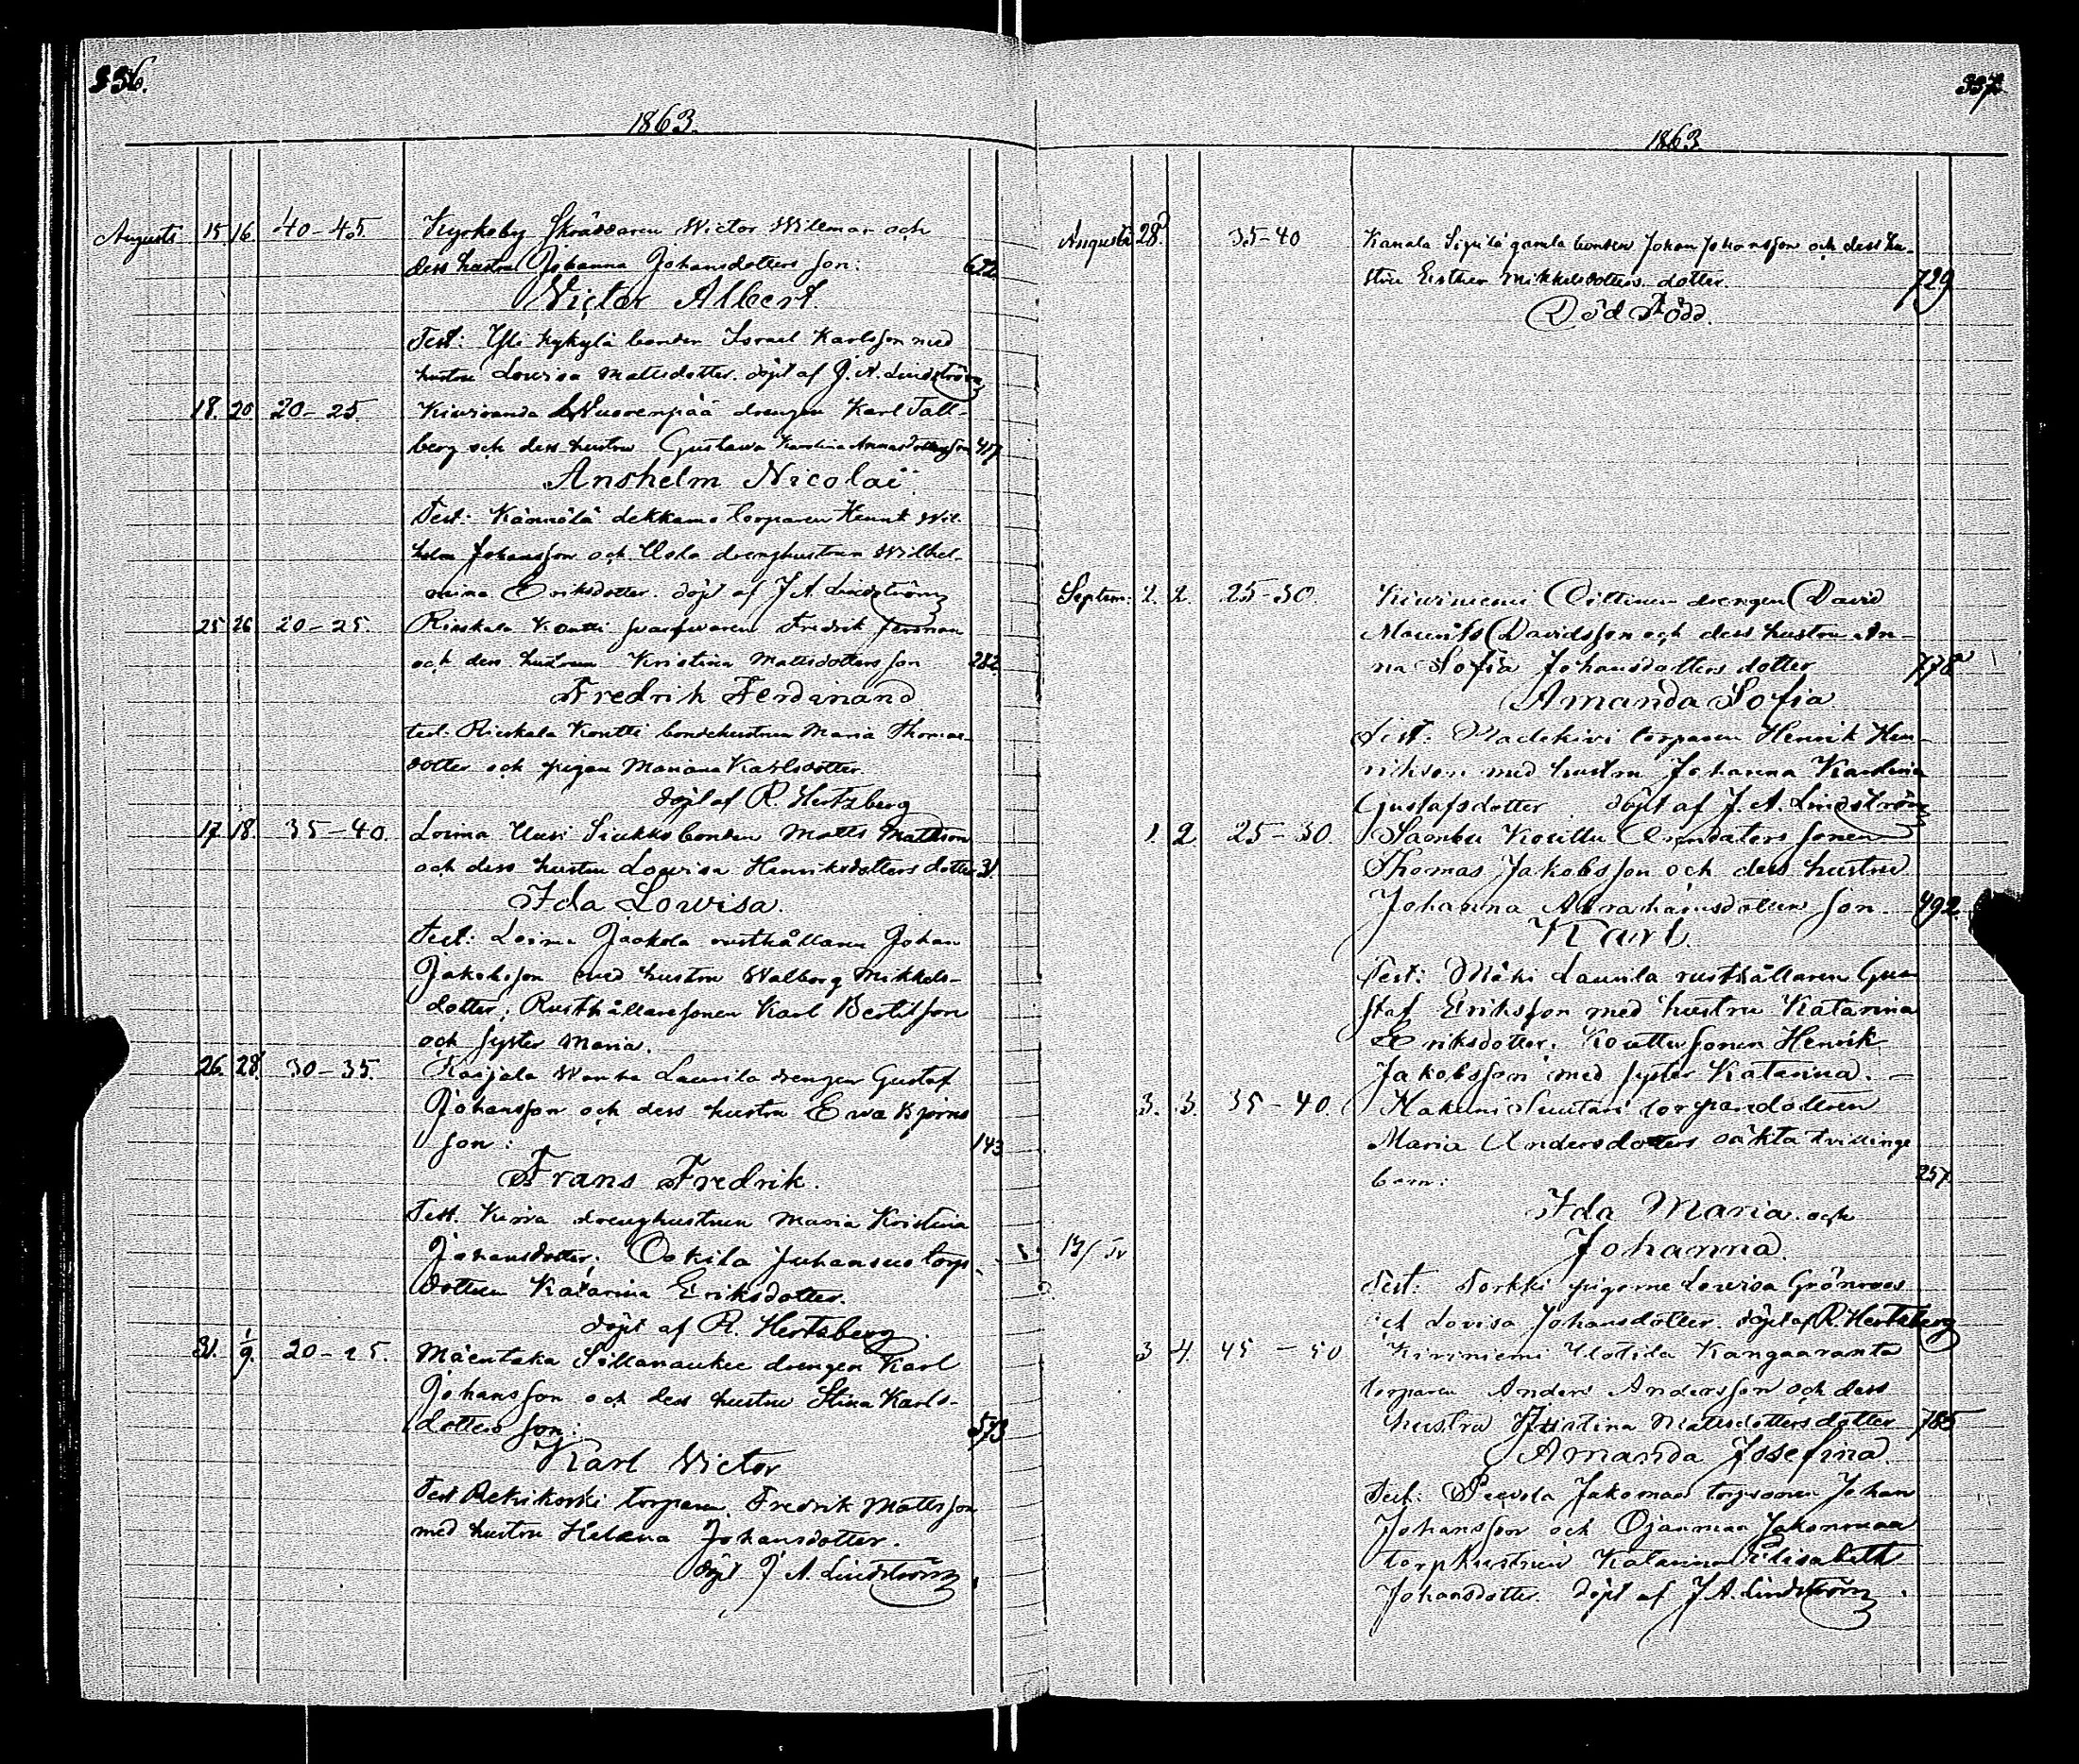 336.
1863.
Augusti 15 16. 40-45 Kyrkoby Skräddaren Wictor Willemar och
dess hustru Johanna Johansdotters son: 622
Victor Albert.
Test: Yli Kykylä bonden Israel Karlsson med
hustru Lovisa Mattsdotter. döpt af J. A. Lindström
18. 20 20-25. Kiviranda Wuorenpää drengen Karl Tall-
berg och dess hustru Gustava Karolina Annasdotters son 417
Anshelm Nicolai
Test: Kännölä Lekkamo torparen Henrik Wil-
helm Johansson och Uola drenghustrun Wilhel-
mina Eriksdotter. döpt af J. A. Lindström
25 26 20-25. Rieskala Koutti Fredrik
och dess hustrun Kristina Mattsdotters son 282.
Fredrik Ferdinand
test: Rieskala Koutti bondehustrun Maria Thomas-
dotter och pigan Mariana Karlsdotter.
döpt af R. Hertzberg
17 18. 35-40. Loima Uusi Siukko bonden Matts Mattson
och dess hustru Lovisa Henriksdotters dotter 31.
Ida Lovisa.
Test: Loima Jaakola rusthållaren Johan
Jakobsson med hustru Walborg Mikkels-
dotter, Rusthållaresonen Karl Bertilsson
och syster Maria.
26. 28. 30-35. Karjala Wanha Laurila drengen Gustaf
Johansson och dess hustru Eva Björns
son: 143
Frans Fredrik.
Test. Kirra drenghustrun Maria Kristina
Johansdotter; Ookila Juhansuo torp-
dottren Katarina Eriksdotter.
döpt af R. Hertzberg
31. 1/9. 20-25. Mäentaka Sillanaukee drengen Karl
Johansson och dess hustru Stina Karls-
dotters son: 573
Karl Victor
Test Rekikoski torparen Fredrik Mattsson
med hustru Helena Johansdotter.
döpt J A. Lindström
337
1863.
Augusti 28. 35-40 Kanala Sipilä gamla bonden Johan Johansson och dess hu-
stru Esther Mikkelsdotters dotter. 729
Död Född.
Septem: 2. 2. 25-30. Kiviniemi Oittinen drengen David
Maunits Davidsson och dess hustru An-
na Sofia Johansdotters dotter 778
Amanda Sofia
Test: Vadekivi torparen Henrik Hen-
rikson med hustru Johanna Karolina
Gustafsdotter döpt af J. A. Lindström
1. 2 25-30. Saonbu Kouttu Arendators sonen
Thomas Jakobsson och dess hustru
Johanna Abrahamsdotters son. 492.
Karl.
Test: Mäki Laurila rusthållaren Gus-
taf Eriksson med hustru Katarina
Eriksdotter. Kouttu sonen Henrik
Jakobsson med syster Katarina.-
3. 3. 35-40. Kakuni Suutari torparedottren
Maria Andersdotters oäkta tvillinge
barn: 257
Ida Maria och
Johanna.
Test: Torkki pigorne Lovisa Grönroos
och Lovisa Johansdotter. döpt af R. Hertzberg
3 4. 45-50 Kiviniemi Ulotila Kangaaranta
torparen Anders Andersson och dess
hustru Kristina Mattsdotters dotter 785
Amanda Josefina.
Test: Peevola Jakomaa torpsonen Johan
Johansson och Ojanmaa Jakonmaa
torphustrun Katarina Elisabeth
Johansdotter. döpt af J A. Lindström